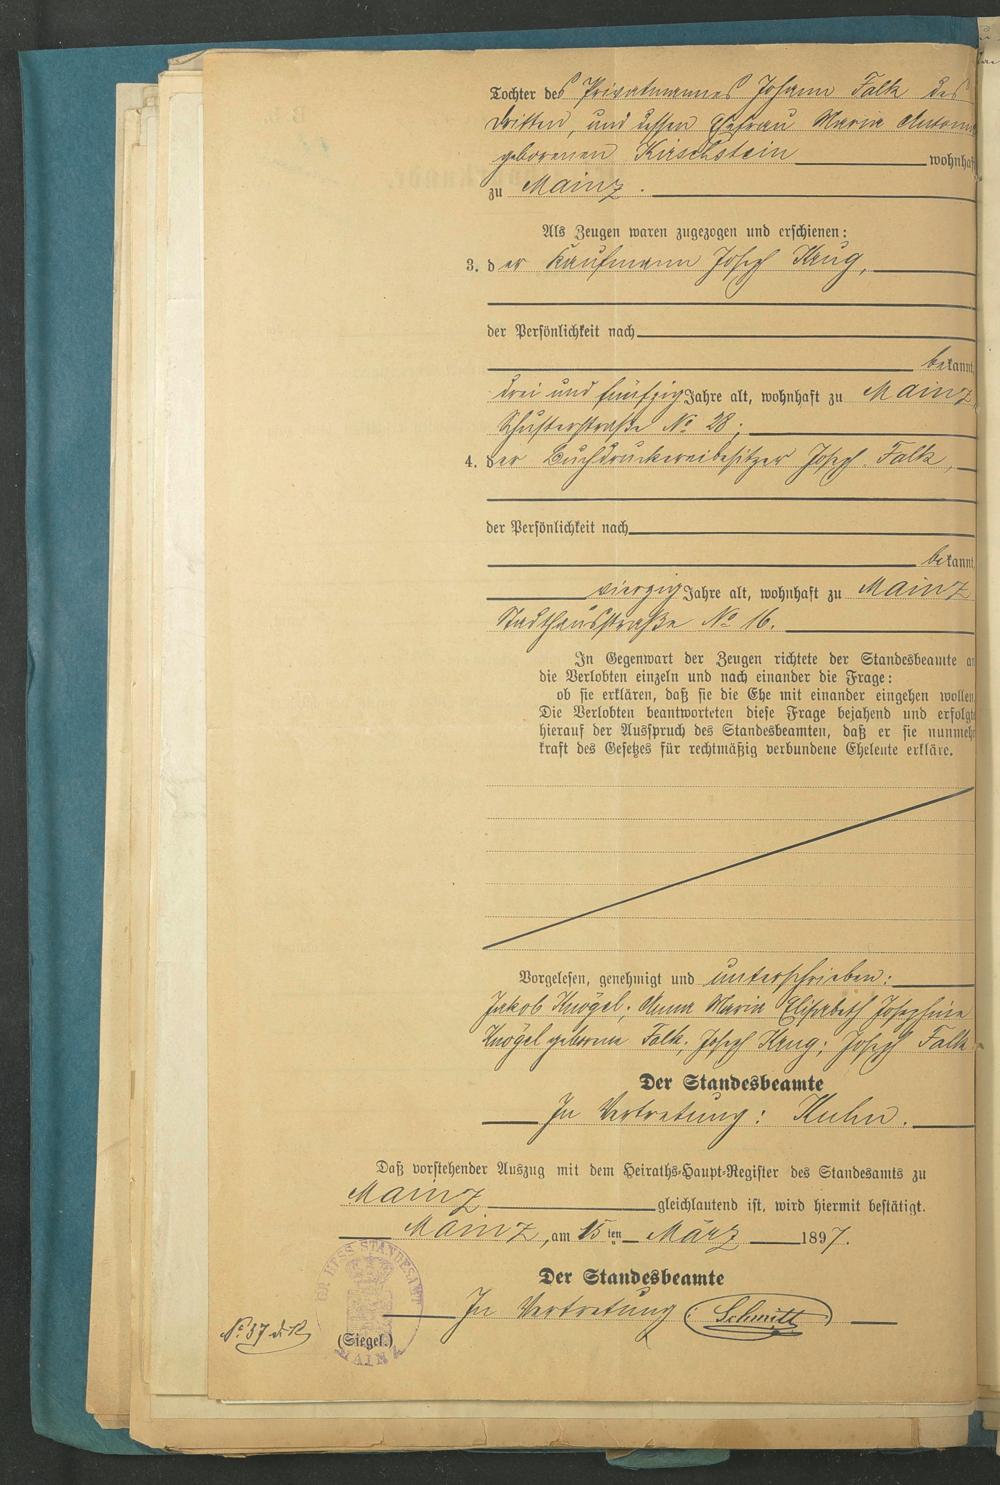 Tochter des Privatmannes Johann Falk des
Dritten, und dessen Ehefrau Maria Antonia
geborenen Kirschstein wohnhaft
zu Mainz.
Als Zeugen waren zugezogen und erschienen:
3. der Kaufmann Joseph Krug,
der Persönlichkeit nach
bekannt,
drei und fünfzig Jahre alt, wohnhaft zu Mainz
Schusterstraße No 28;
4. der Buchdruckereibesitzer Joseph Falk,
der Persönlichkeit nach
bekannt,
vierzig Jahre alt, wohnhaft zu Mainz
Stadthausstraße No 16.
In Gegenwart der Zeugen richtete der Standesbeamte an
die Verlobten einzeln und nach einander die Frage:
ob sie erklären, daß sie die Ehe mit einander eingehen wollen.
Die Verlobten beantworteten diese Frage bejahend und erfolgte
hierauf der Ausspruch des Standesbeamten, daß er sie nunmehr
kraft des Gesetzes für rechtmäßig verbundene Eheleute erkläre.
Vorgelesen, genehmigt und unterschrieben:
Jakob Knögel; Anna Maria Elisabeth Josephine
Knögel geborene Falk; Joseph Krug; Joseph Falk
Der Standesbeamte
In Vertretung: Kuhn.
Daß vorstehender Auszug mit dem Heiraths-Haupt-Register des Standesamts zu
Mainz gleichlautend ist, wird hiermit bestätigt.
Mainz, am 15ten März 1897.
Der Standesbeamte
In Vertretung Schmitt
No 37 d. R
(Siegel.)
GR HESS STANDESAMT
MAINZ